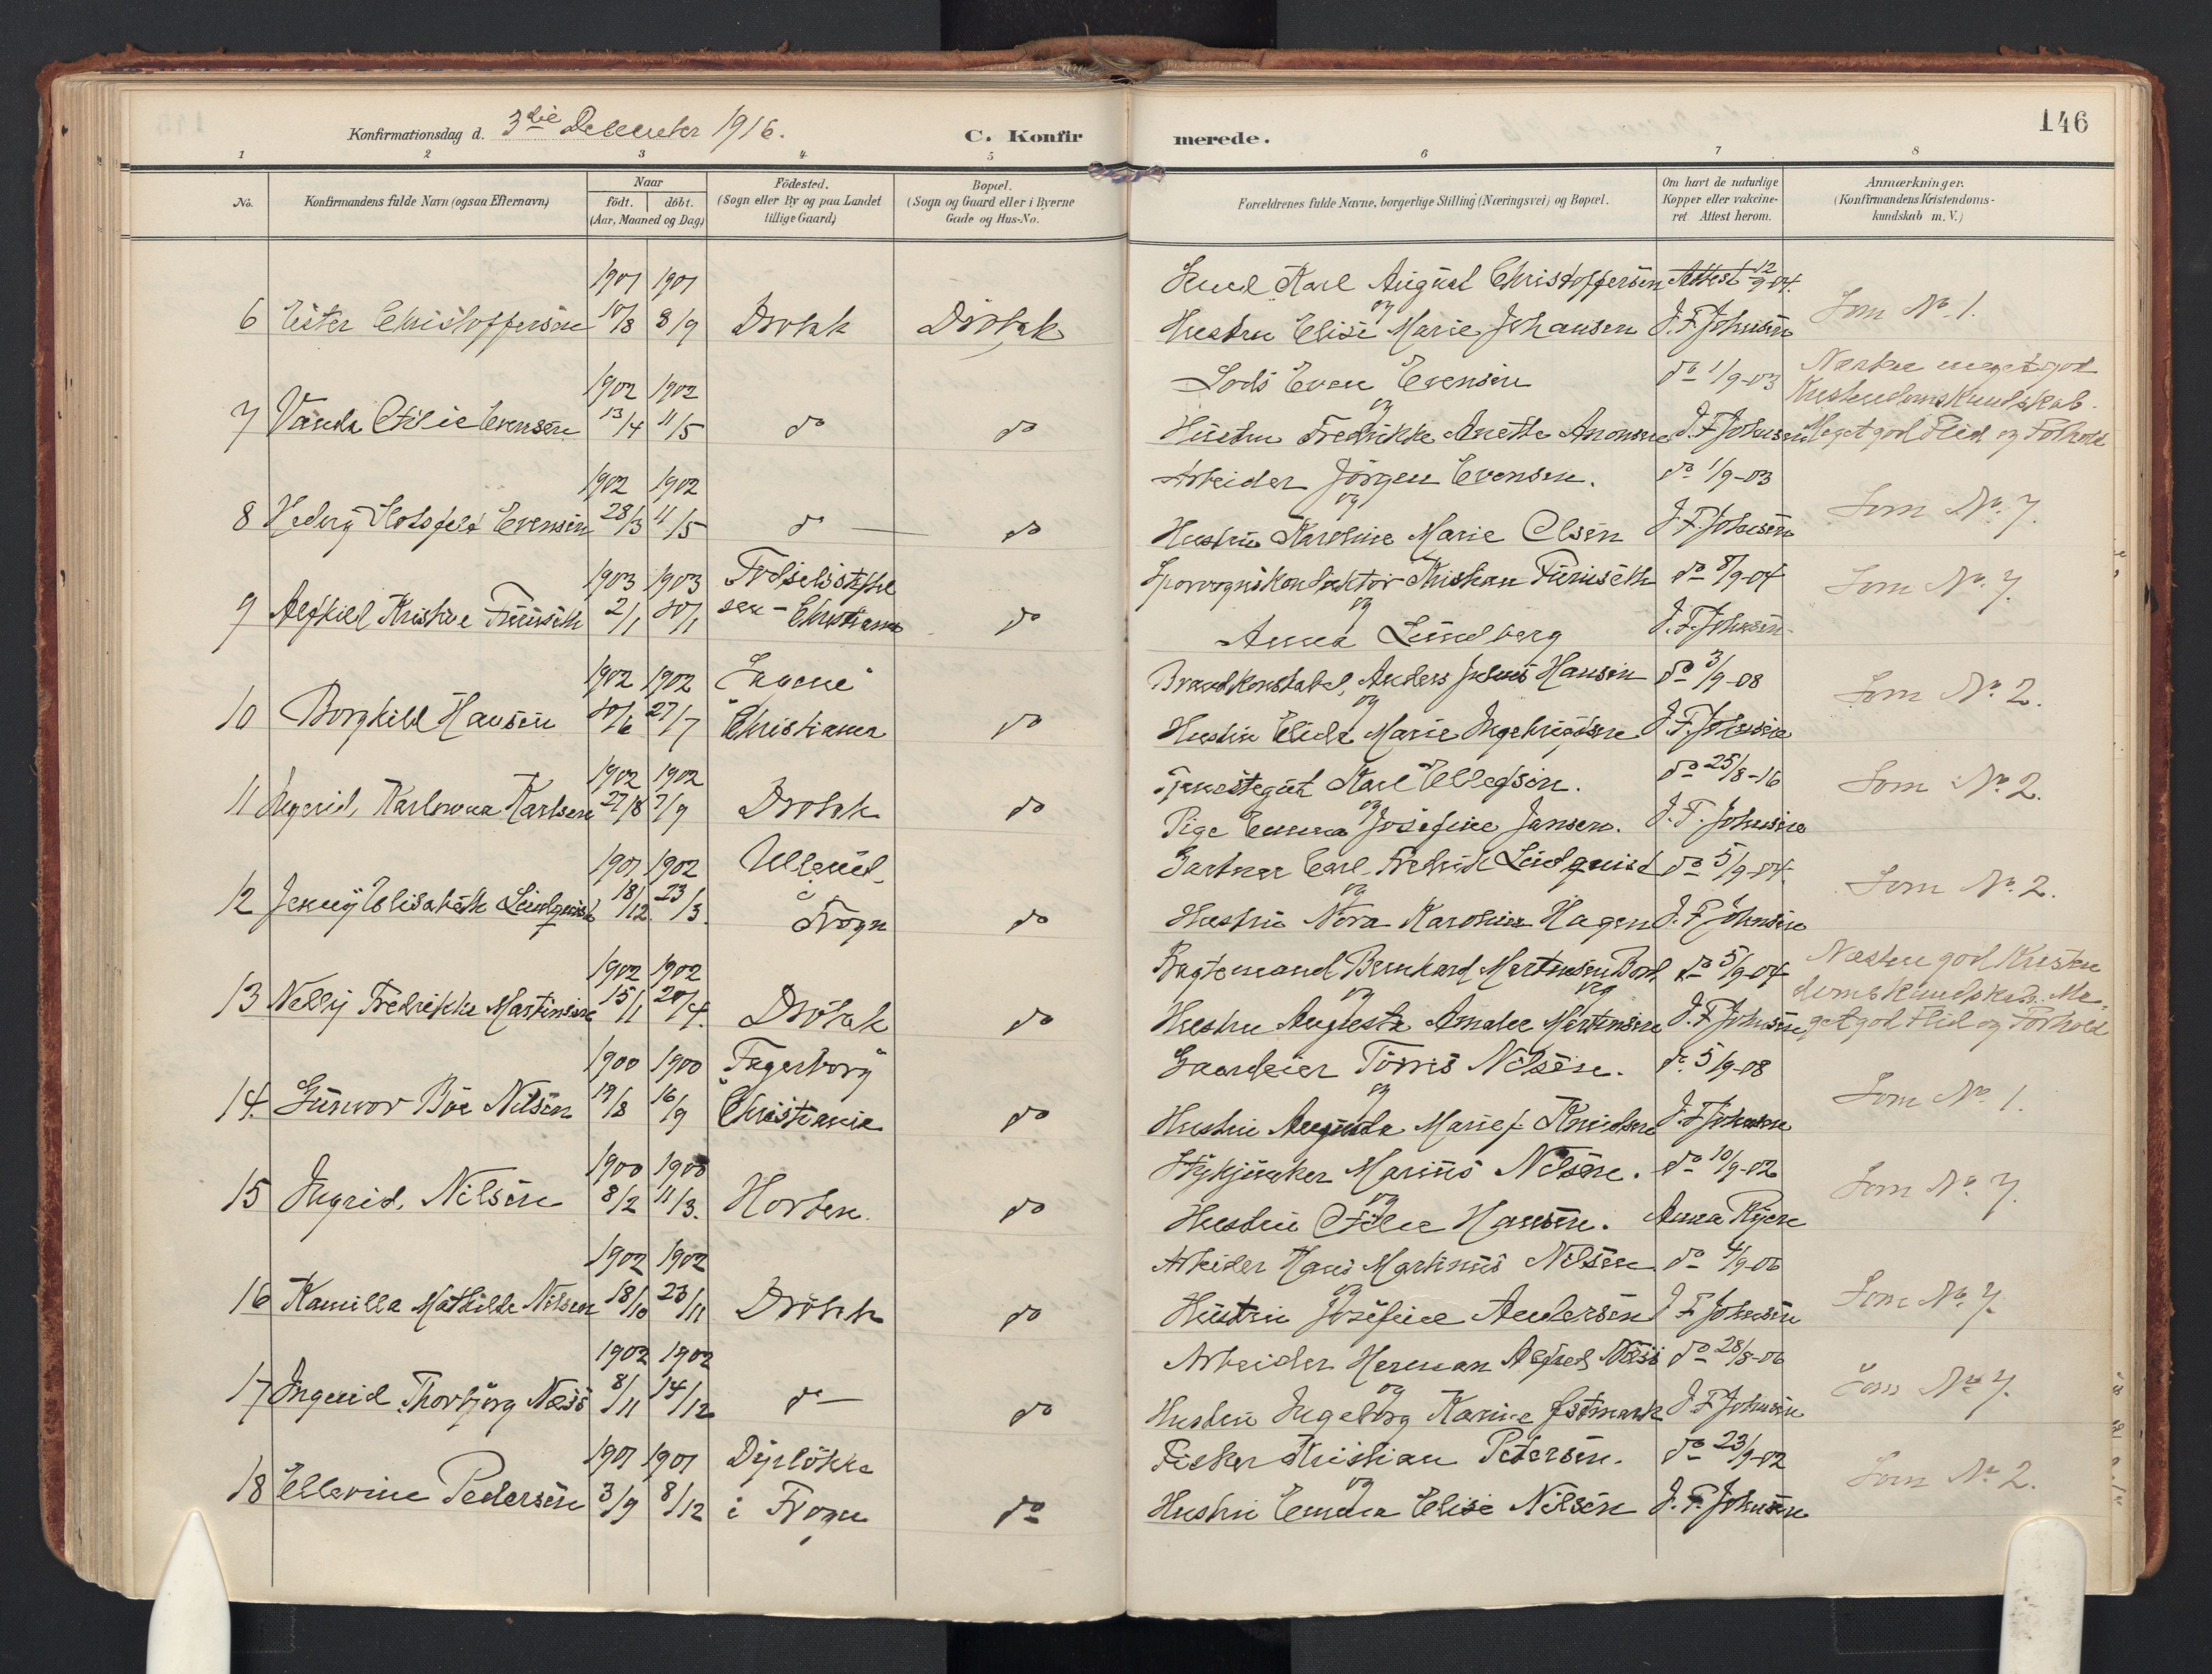 146
Konfirmationsdag d. 3die December 1916.
C. Konfirmerede.
1 2 3 4 5 6 7 8
No.
Konfirmandens fulde Navn (ogsaa Efternavn)
Naar
födt. döbt.
(Aar, Maaned og Dag)
Födested.
(Sogn eller By og paa Landet
tillige Gaard)
Bopæl.
(Sogn og Gaard eller i Byerne
Gade og Hus-No.
Forældrenes fulde Navne, borgerlige Stilling (Næringsvei) og Bopæl.
Om havt de naturlige
Kopper eller vakcine-
ret. Attest herom.
Anmærkninger.
(Konfirmandens Kristendoms-
kundskab m. V.)
1901 1901 Karl August Christoffersen Attest 12/9-04.
6 Ester Christoffersen 10/8 8/9 Drøbak Drøbak og Hustru Elise Marie Johansen J. F. Johnsen Som No. 1.
1902 1902 Lods Even Evensen do 1/9-03 Næsten meget god
Kristendomskundskab.
7 Vanda Otilie Evensen 13/4 11/5 do do og Hustru Fredrikke Anette Aronsen J. F. Johnsen Meget god Flid og Forhold
1902 1902 Arbeider Jörgen Evensen. do 1/9-03
8 Hedvig Evensen 28/3 11/5 do do og Hustru Karoline Marie Olsen J. F. Johnsen Som No. 7.
1903 1903 Födselsstiftel do 8/9-04
Sporvognskonduktör Kristian Furuseth
9 Alfhild Kristine Furuseth 2/1 /1 sen - Christiania do og Anna Lundberg J. F. Johnsen Som No. 7.
1902 1902 Brandkonstabel, Anders Julius Hansen do 3/9-08
10 Borghild Hansen /6 27/7 Christiania do og Hustru Elida Marie Ingebrigtsen J. F. Johnsen Som No. 2.
1902 1902 Tjenestegut Karl Ellefsen. do 25/8-16
11 Ingerid, Karlsen 27/8 7/9 Drøbak do og Pige Emma Josefine Jansen. J. F. Johnsen Som No. 2.
1901 1902 Ullerud Gartner Carl Fredrik Lindquist do 5/9-04.
12 Jenny Elisabeth Lindquist 18/12 23/3. i Frogn do og Hustru Nora Karoline Hagen J. F. Johnsen Som No. 2.
1902 1902 Bernhard Martinsen do 5/9-04 Næsten god Kristen
domskundskab. Me-
13 Nelly Fredrikke Martinsen 15/1 20/4. Drøbak do og Hustru Augusta Amalie Martinsen J. F. Johnsen get god Flid og Forhold
1900 1900 Fagerborg Gaardeier Torris Nilsen. do 5/9-08
14. Gunvor Bøe Nilsen 19/8 16/9 Christiania do og Hustru Augusta Marie f. Knudsen J. F. Johnsen Som No. 1.
1900 1900 Marius Nilsen. do 10/9-02
15 Ingrid, Nilsen 8/2 11/3. Horten do og Hustru Otilie Hansen. Anna Som No. 7.
1902 1902 Arbeider Hans Martinus Nilsen do 4/9-06
16 Kamilla Mathilde Nilsen 18/10 23/11 Drøbak do og Hustru Josefine Andersen J. F. Johnsen Som No. 7.
1902 1902 Arbeider Herman Alfred Næss do 28/8-06
17 Ingerid Thorbjørg Næss 8/11 14/12 do do og Hustru Ingeborg Karine Østmark J. F. Johnsen Som No. 7.
1901 1901 Dyrløkke Fisker Kristian Petersen. do 23/9-02
18 Ellevine Pedersen 3/9 8/12 i Frogn do og Hustru Emma Elise Nilsen J. F. Johnsen Som No. 2.